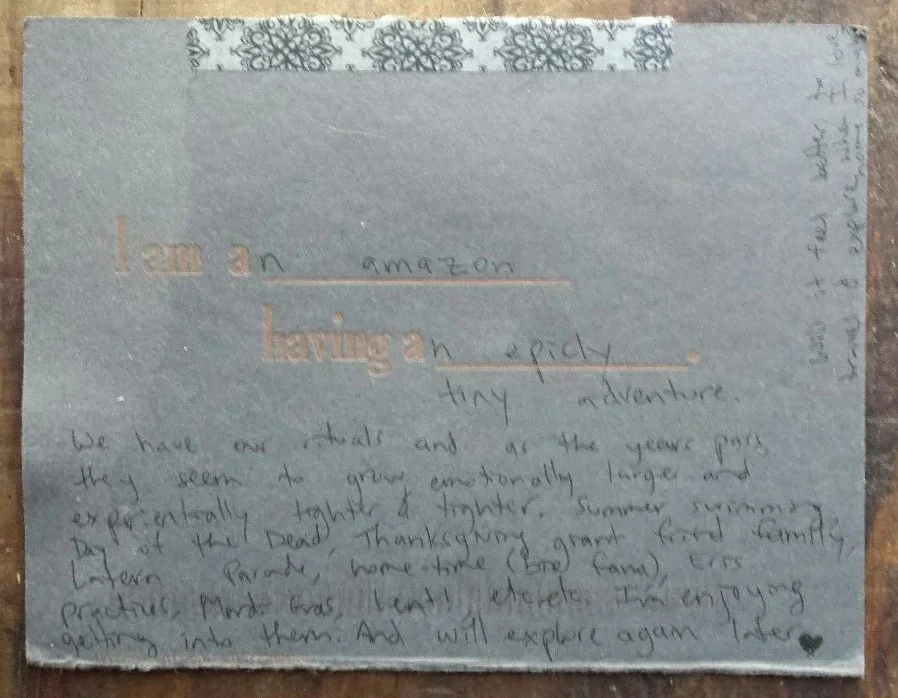 I am an amazon
having an epicly
tiny adventure.
We have our rituals and as the years pass,
they seem to grow emotionally larger and
experientially tighter & tighter. Summer swimming,
Day of the Dead, Thanksgiving grant fried family,
Latern Parade, home-time (bro fana),
practices, Mardi Gras, Lent, etcetc. I'm enjoying
getting into them. And will explore again later ♥
would it feel better to
travel & explore when I love
home so much